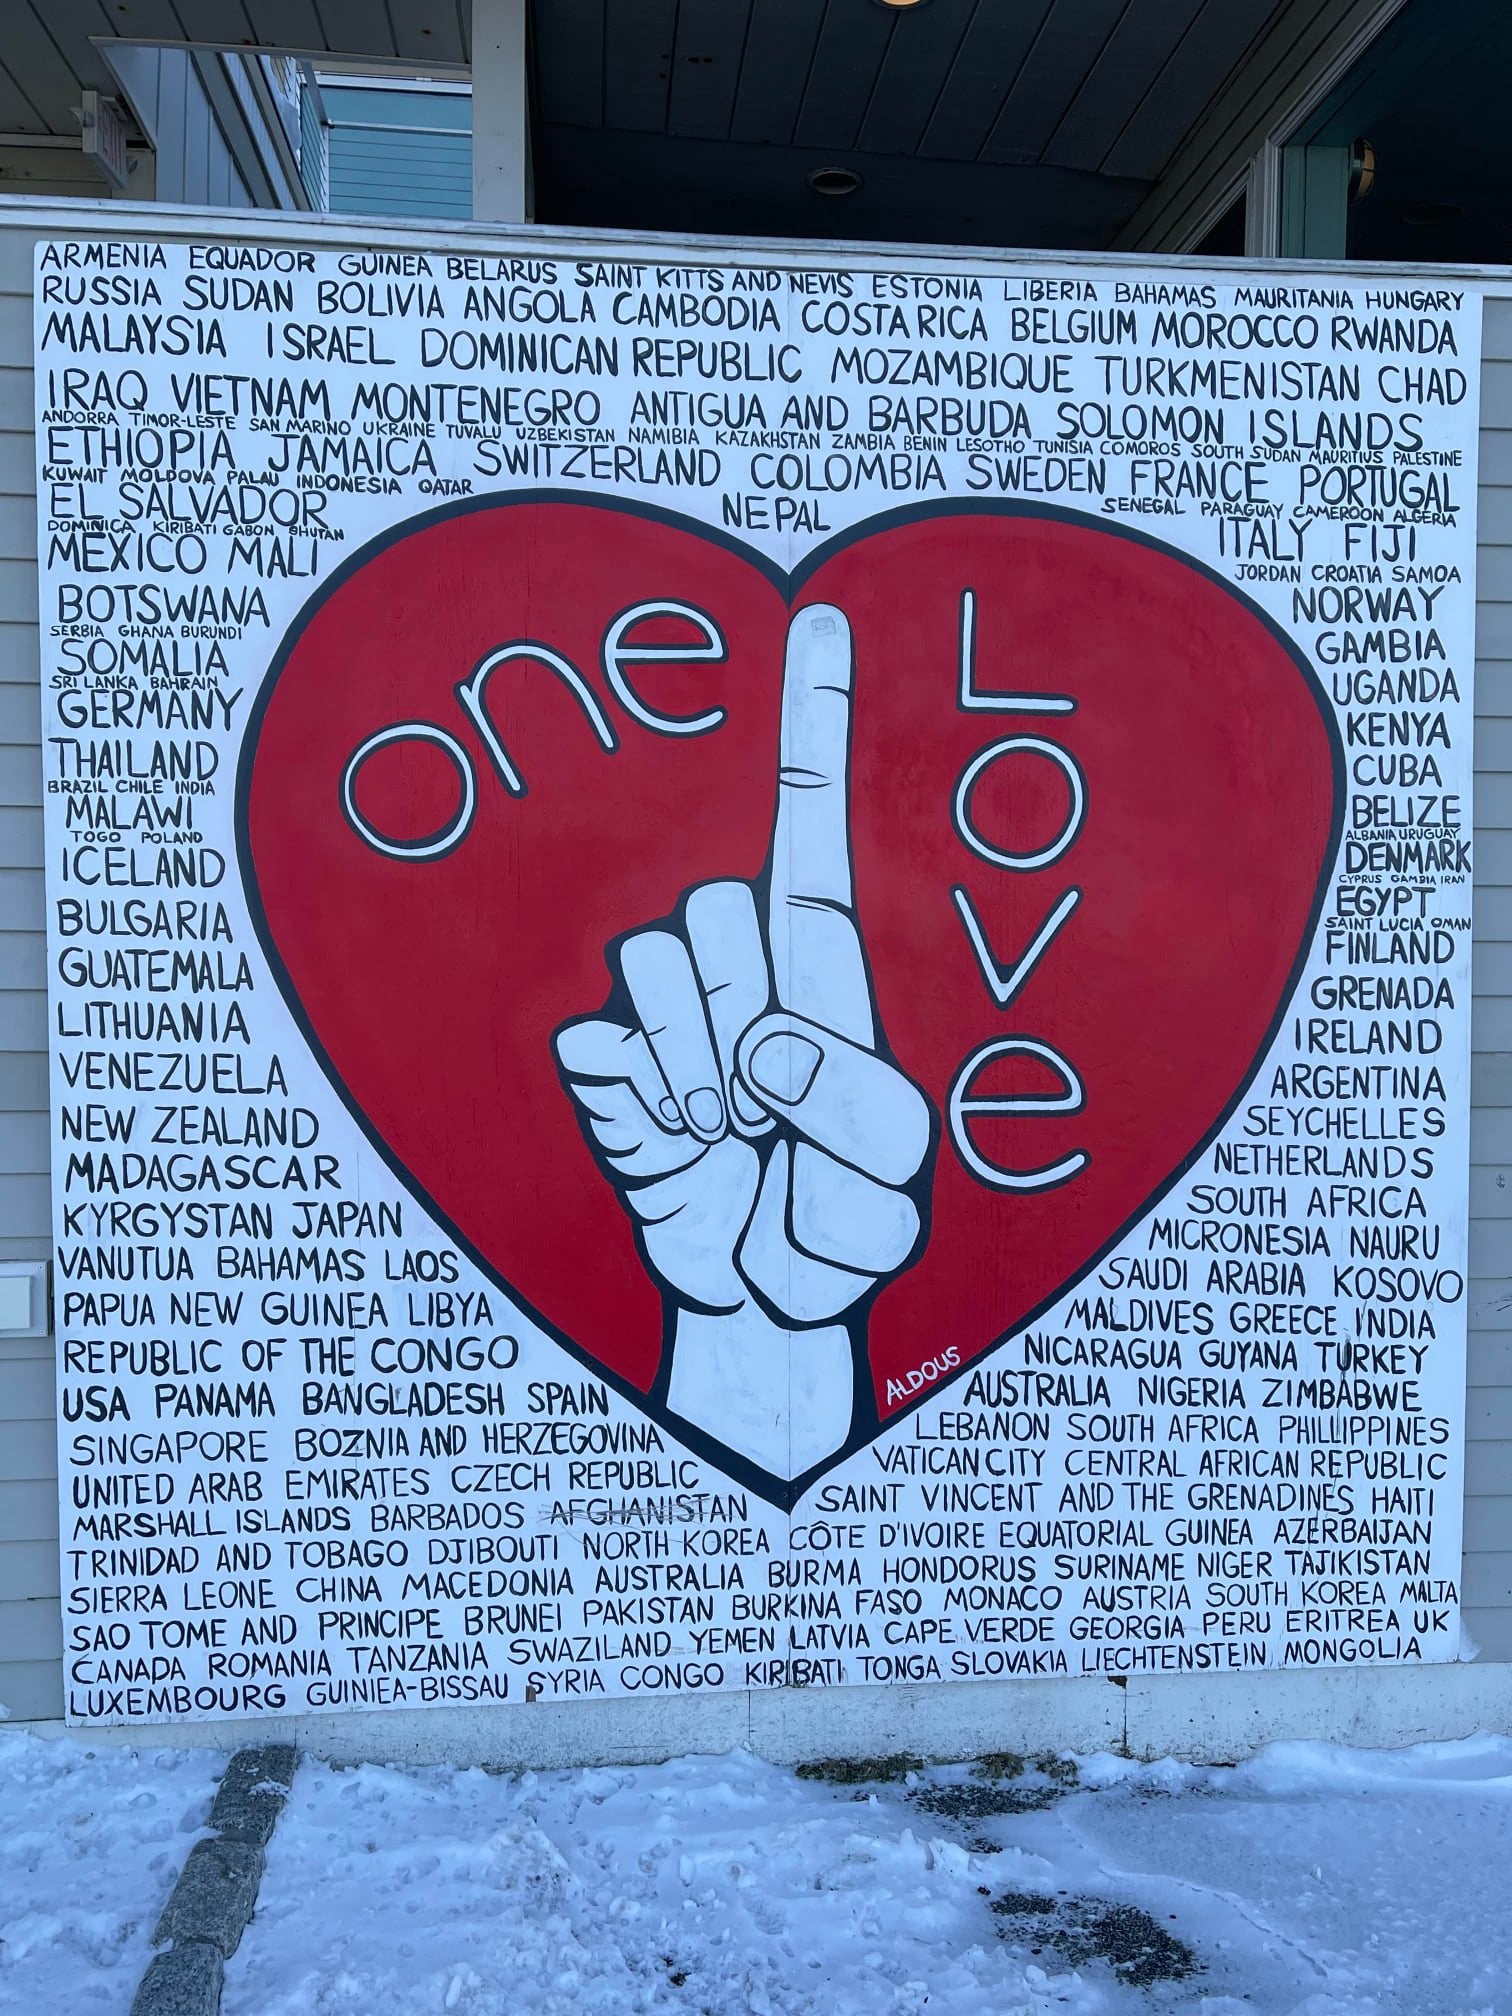 ARMENIA EQUADOR GUINEA BELARUS SAINT KITTS AND NEVIS ESTONIA LIBERIA BAHAMAS MAURITANIA HUNGARY
RUSSIA SUDAN BOLIVIA ANGOLA CAMBODIA COSTA RICA BELGIUM MOROCCO RWANDA
MALAYSIA ISRAEL DOMINICAN REPUBLIC MOZAMBIQUE TURKMENISTAN CHAD
IRAQ VIETNAM MONTENEGRO ANTIGUA AND BARBUDA SOLOMON ISLANDS
ANDORRA TIMOR-LESTE SAN MARINO UKRAINE TUVALU UZBEKISTAN NAMIBIA KAZAKHSTAN ZAMBIA BENIN LESOTHO TUNISIA COMOROS SOUTH SUDAN MAURITIUS PALESTINE
ETHIOPIA JAMAICA SWITZERLAND COLOMBIA SWEDEN FRANCE PORTUGAL
KUWAIT MOLDOVA PALAU INDONESIA QATAR
EL SALVADOR
NEPAL
SENEGAL PARAGUAY CAMEROON ALGERIA
DOMINICA KIRIBATI GABON BHUTAN
MEXICO MALI
ITALY FIJI
JORDAN CROATIA SAMOA
BOTSWANA
NORWAY
SERBIA GHANA BURUNDI
SOMALIA
GAMBIA
SRI LANKA BAHRAIN
GERMANY
UGANDA
KENYA
THAILAND
CUBA
BRAZIL CHILE INDIA
MALAWI
BELIZE
TOGO POLAND
ALBANIA URUGUAY
ICELAND
DENMARK
CYPRUS GAMBIA IRAN
BULGARIA
EGYPT
SAINT LUCIA OMAN
FINLAND
GUATEMALA
GRENADA
LITHUANIA
IRELAND
VENEZUELA
ARGENTINA
NEW ZEALAND
SEYCHELLES
MADAGASCAR
NETHERLANDS
KYRGYSTAN JAPAN
SOUTH AFRICA
VANUTUA BAHAMAS LAOS
MICRONESIA NAURU
SAUDI ARABIA KOSOVO
PAPUA NEW GUINEA LIBYA
MALDIVES GREECE INDIA
REPUBLIC OF THE CONGO
NICARAGUA GUYANA TURKEY
USA PANAMA BANGLADESH SPAIN
AUSTRALIA NIGERIA ZIMBABWE
SINGAPORE BOZNIA AND HERZEGOVINA
LEBANON SOUTH AFRICA PHILLIPPINES
UNITED ARAB EMIRATES CZECH REPUBLIC
VATICAN CITY CENTRAL AFRICAN REPUBLIC
MARSHALL ISLANDS BARBADOS AFGHANISTAN
SAINT VINCENT AND THE GRENADINES HAITI
TRINIDAD AND TOBAGO DJIBOUTI NORTH KOREA CÔTE D'IVOIRE EQUATORIAL GUINEA AZERBAIJAN
SIERRA LEONE CHINA MACEDONIA AUSTRALIA BURMA HONDORUS SURINAME NIGER TAJIKISTAN
SAO TOME AND PRINCIPE BRUNEI PAKISTAN BURKINA FASO MONACO AUSTRIA SOUTH KOREA MALTA
CANADA ROMANIA TANZANIA SWAZILAND YEMEN LATVIA CAPE VERDE GEORGIA PERU ERITREA UK
LUXEMBOURG GUINIEA-BISSAU SYRIA CONGO KIRIBATI TONGA SLOVAKIA LIECHTENSTEIN MONGOLIA
one
Love
ALDOUS